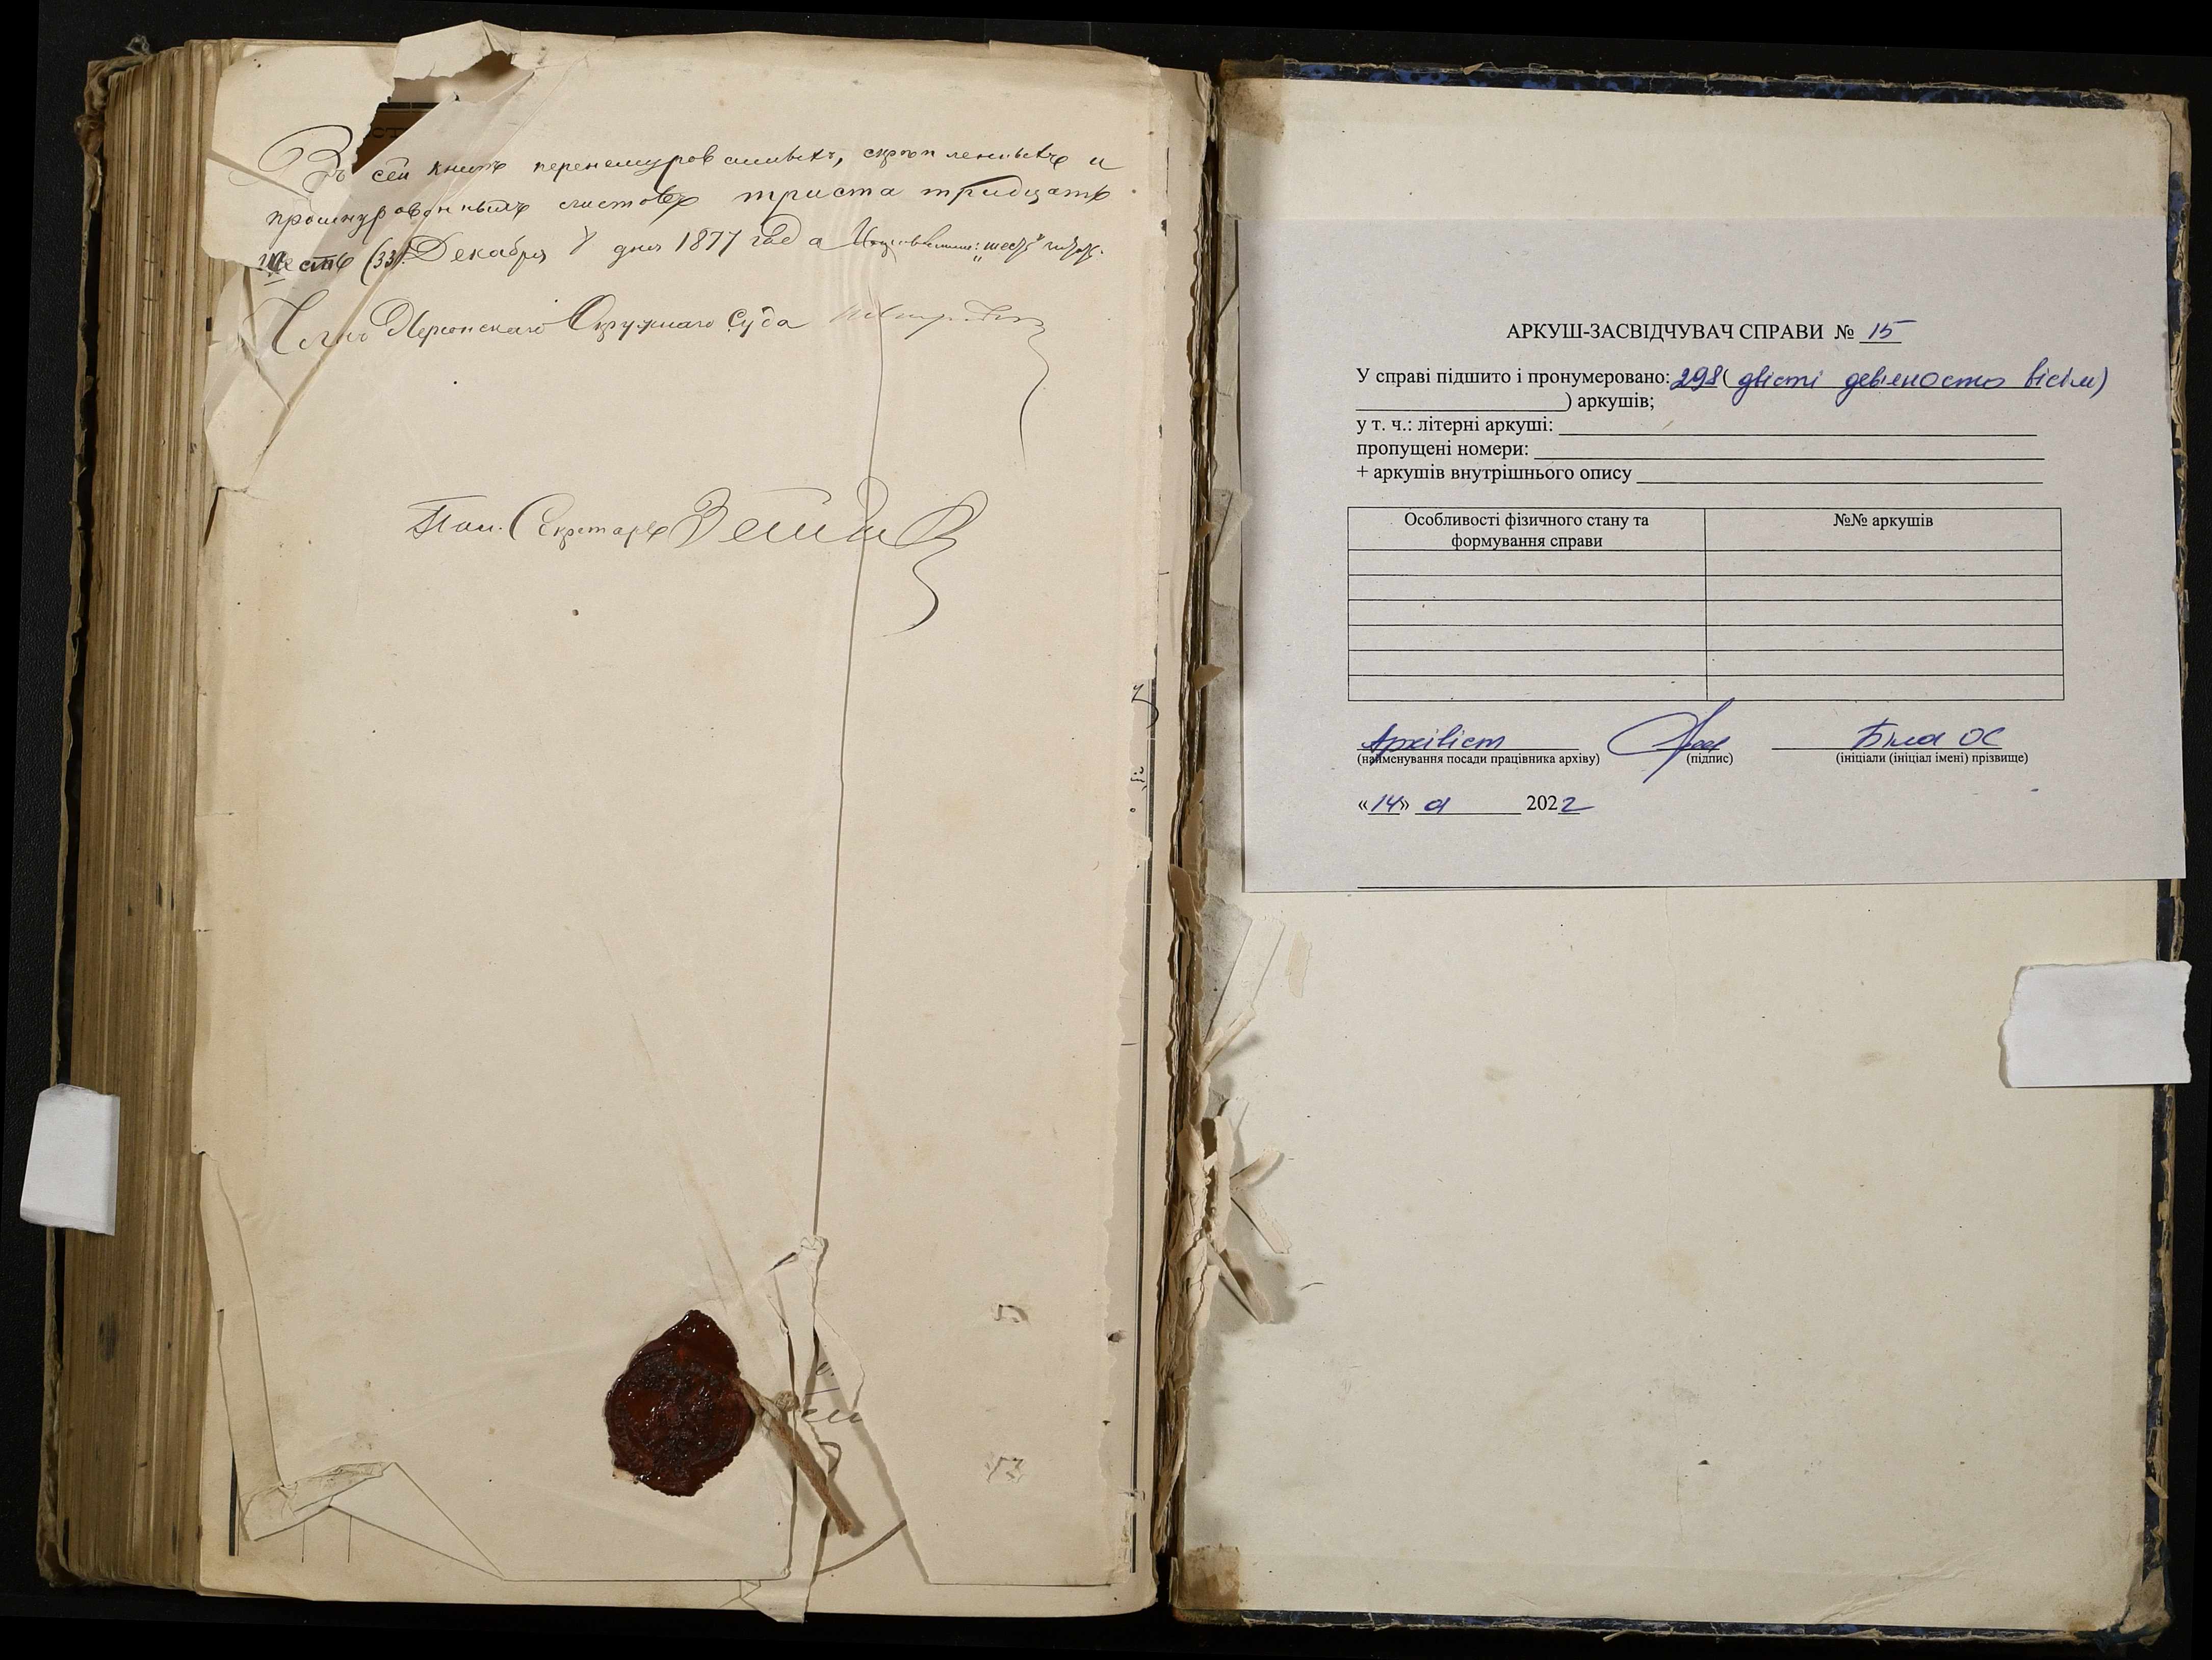 Въ сей книгѣ перенумерованныхъ, скрѣпленныхъ и
прошнурованныхъ листовъ триста тридцать
шесть (33 Декабря 7 дня 1877 года
Членъ Херсонскаго Окружнаго Суда
Пом. Секретаря
АРКУШ-ЗАСВІДЧУВАЧ СПРАВИ № 15
У справі підшито і пронумеровано: 298 ( двісті дев'яносто вісім)
) аркушів;
у т. ч.: літерні аркуші:
пропущені номери:
+ аркушів внутрішнього опису
Особливості фізичного стану та
формування справи
№№ аркушів
Архівіст Біла ОС
(найменування посади працівника архіву) (підпис) (ініціали (ініціал імені) прізвище)
«14» 2022